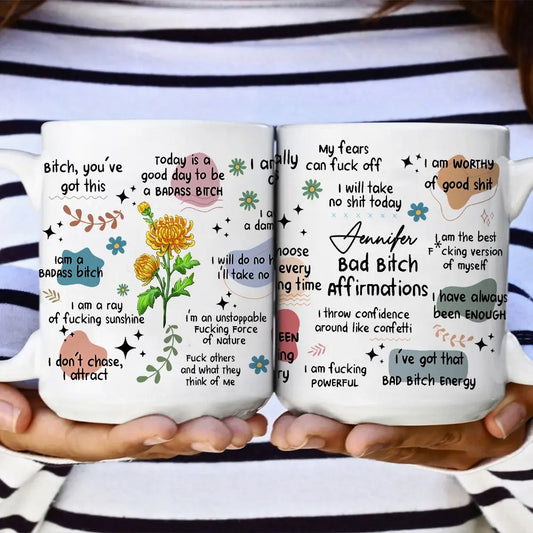 Bitch, you've
got this
Today is a
good day to be
a BADASS BITCH
I am a
BADASS bitch
I am a ray
of fucking sunshine
I don't chase,
I attract
I'm an unstoppable
Fucking Force
of Nature
Fuck others
and what they
think of Me
I an
I am
a dam
I will do no h
I'll take no
ally
My fears
can fuck off
I will take
no shit today
I am WORTHY
of good shit
Jennifer
Bad Bitch
Affirmations
I am the best
f*cking version
of myself
hoose
every
ing time
I throw confidence
around like confetti
I have always
been ENOUGH
EEN
ing
ry
I am fucking
POWERFUL
I've got that
BAD BITCH ENERGY